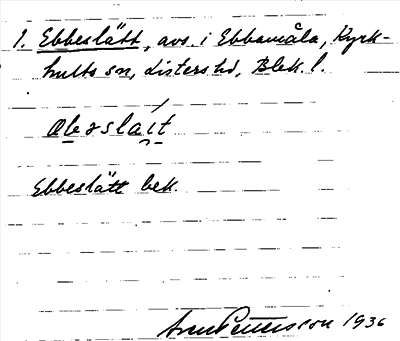 1. Ebbeslätt, avs. i Ebbamåla, Kyrk-
hults sn, Listers hd, Blek. l.
æbəsla̱it
Ebbeslätt bek.
Pettersson 1936